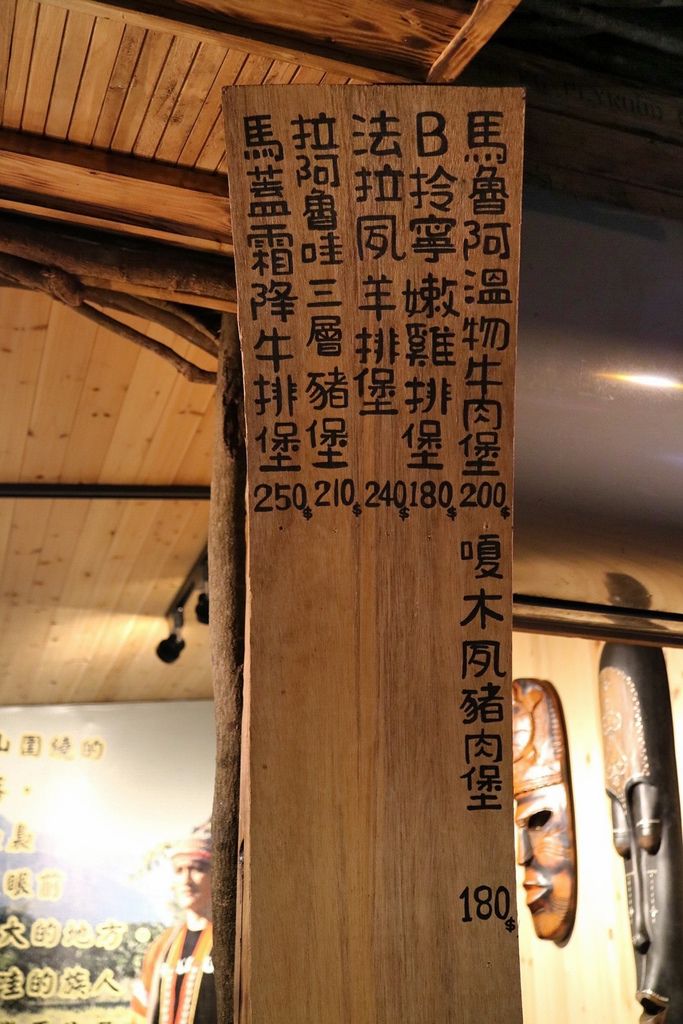 馬魯阿溫物牛肉堡
200$
B拎寧嫩雞排堡
180$
法拉夙羊排堡
240$
拉阿魯哇三層豬堡
210$
馬蓋霜降牛排堡
250$
嗄木夙豬肉堡
180$
山圍繞的
眼前
大的地方
哇的族人